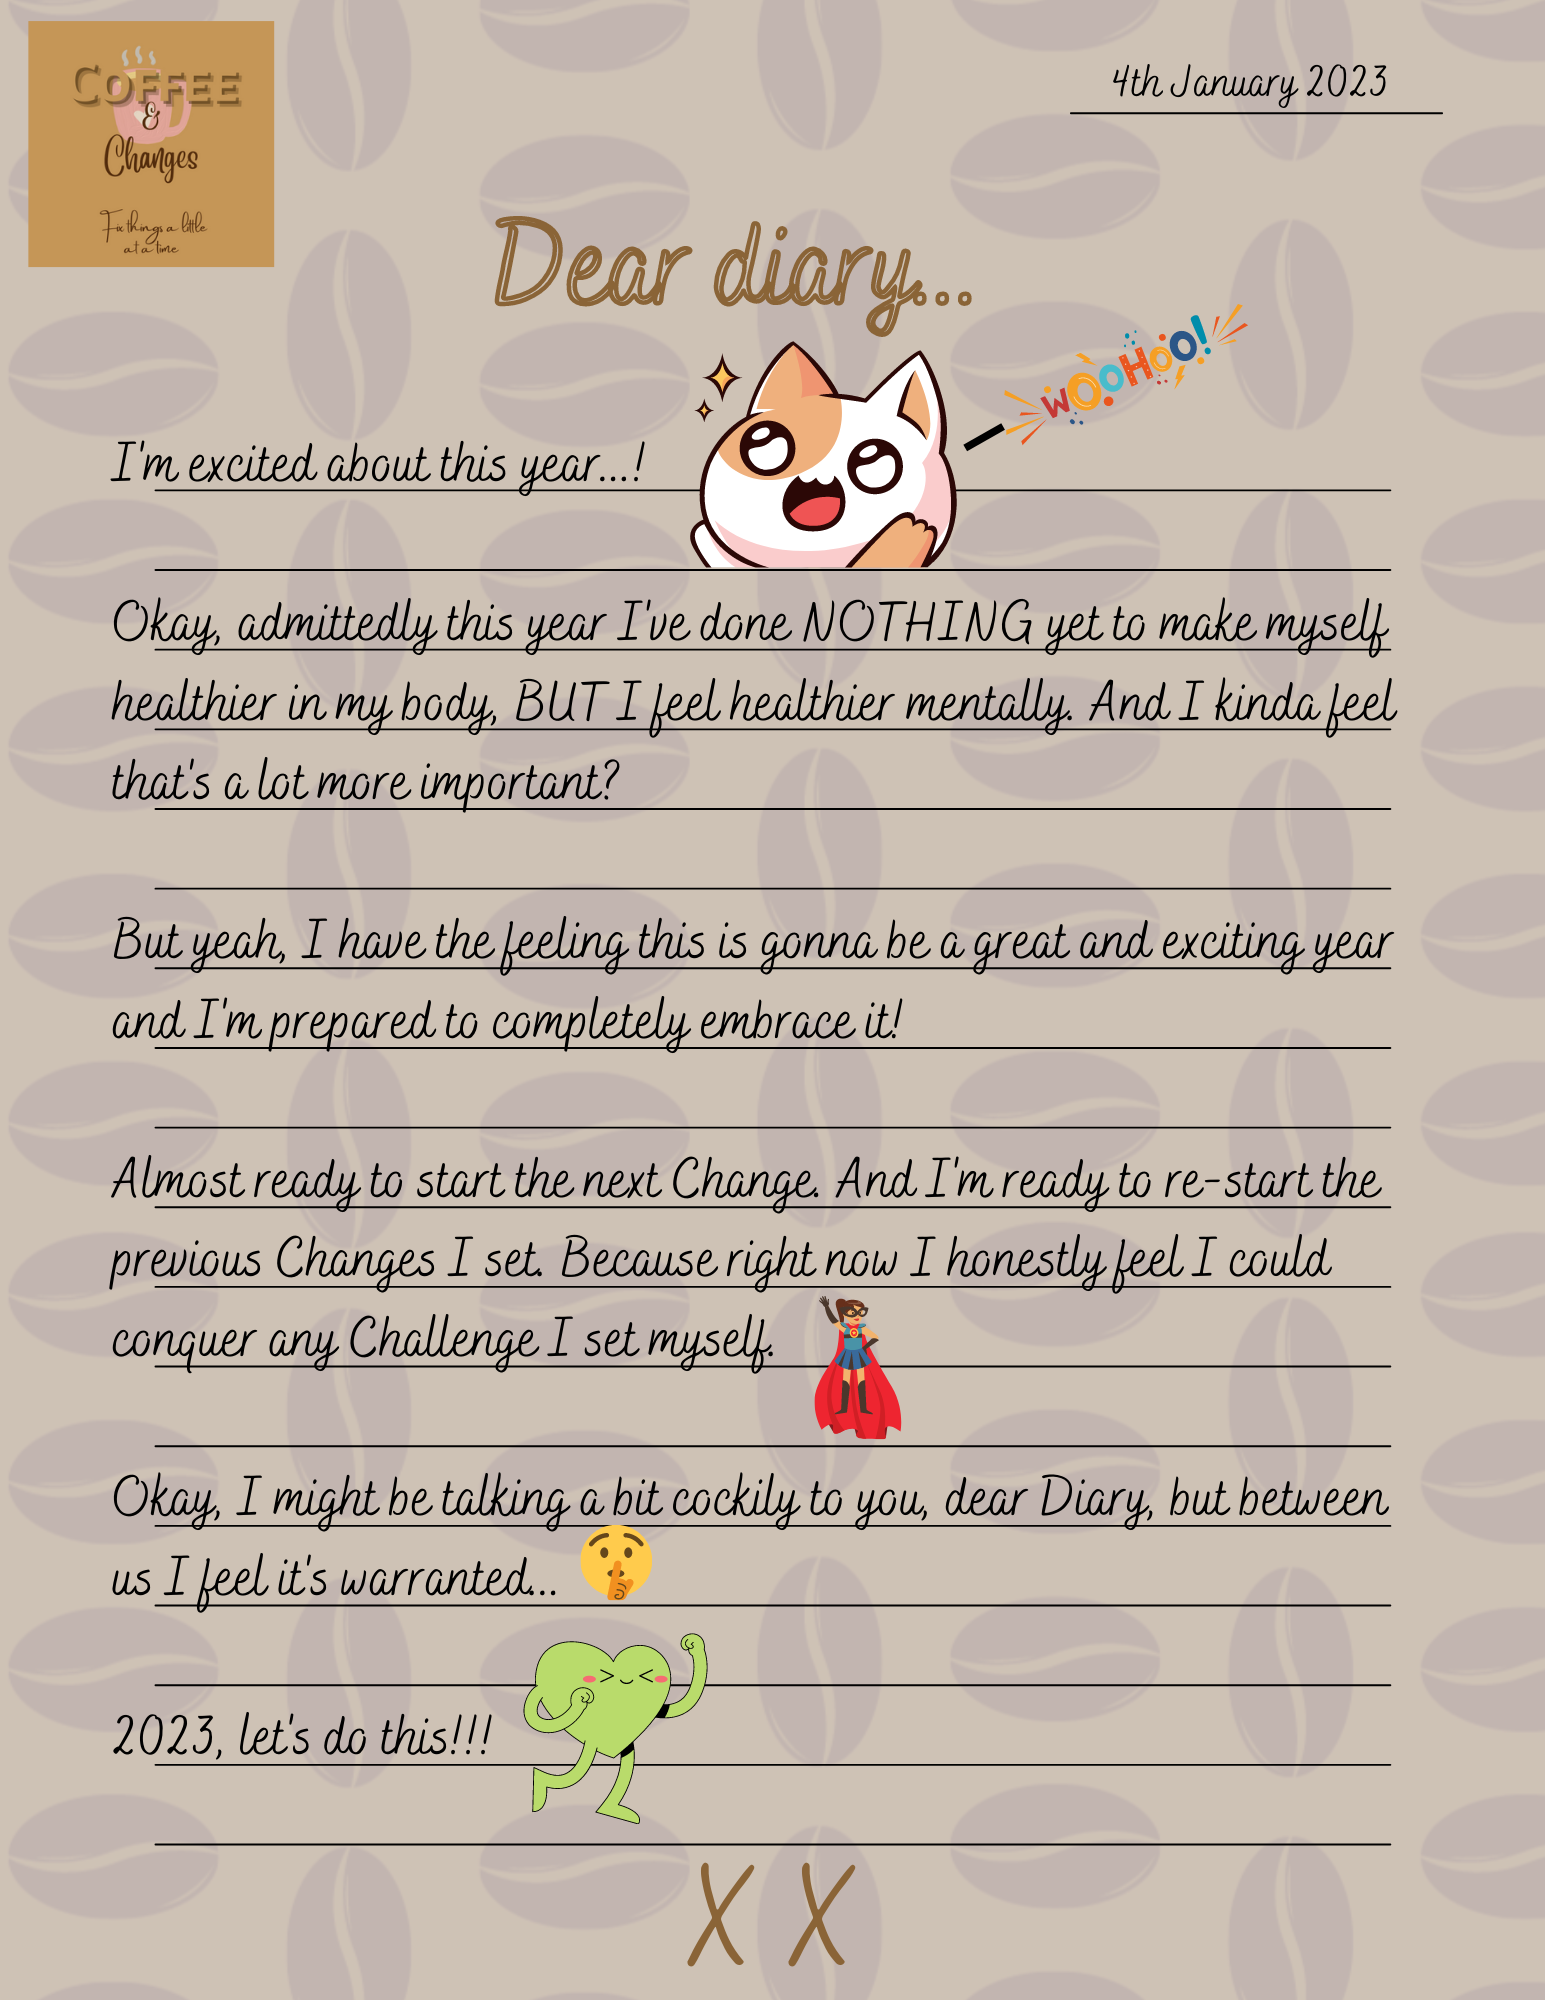 COFFEE
&
Changes
Fix things a little
at a time
4th January 2023
Dear diary...
WOOHOO!
I'm excited about this year...!
Okay, admittedly this year I've done NOTHING yet to make myself
healthier in my body, BUT I feel healthier mentally. And I kinda feel
that's a lot more important?
But yeah, I have the feeling this is gonna be a great and exciting year
and I'm prepared to completely embrace it!
Almost ready to start the next Change. And I'm ready to re-start the
previous Changes I set. Because right now I honestly feel I could
conquer any Challenge I set myself.
Okay, I might be talking a bit cockily to you, dear Diary, but between
us I feel it's warranted...
2023, let's do this!!!
X X